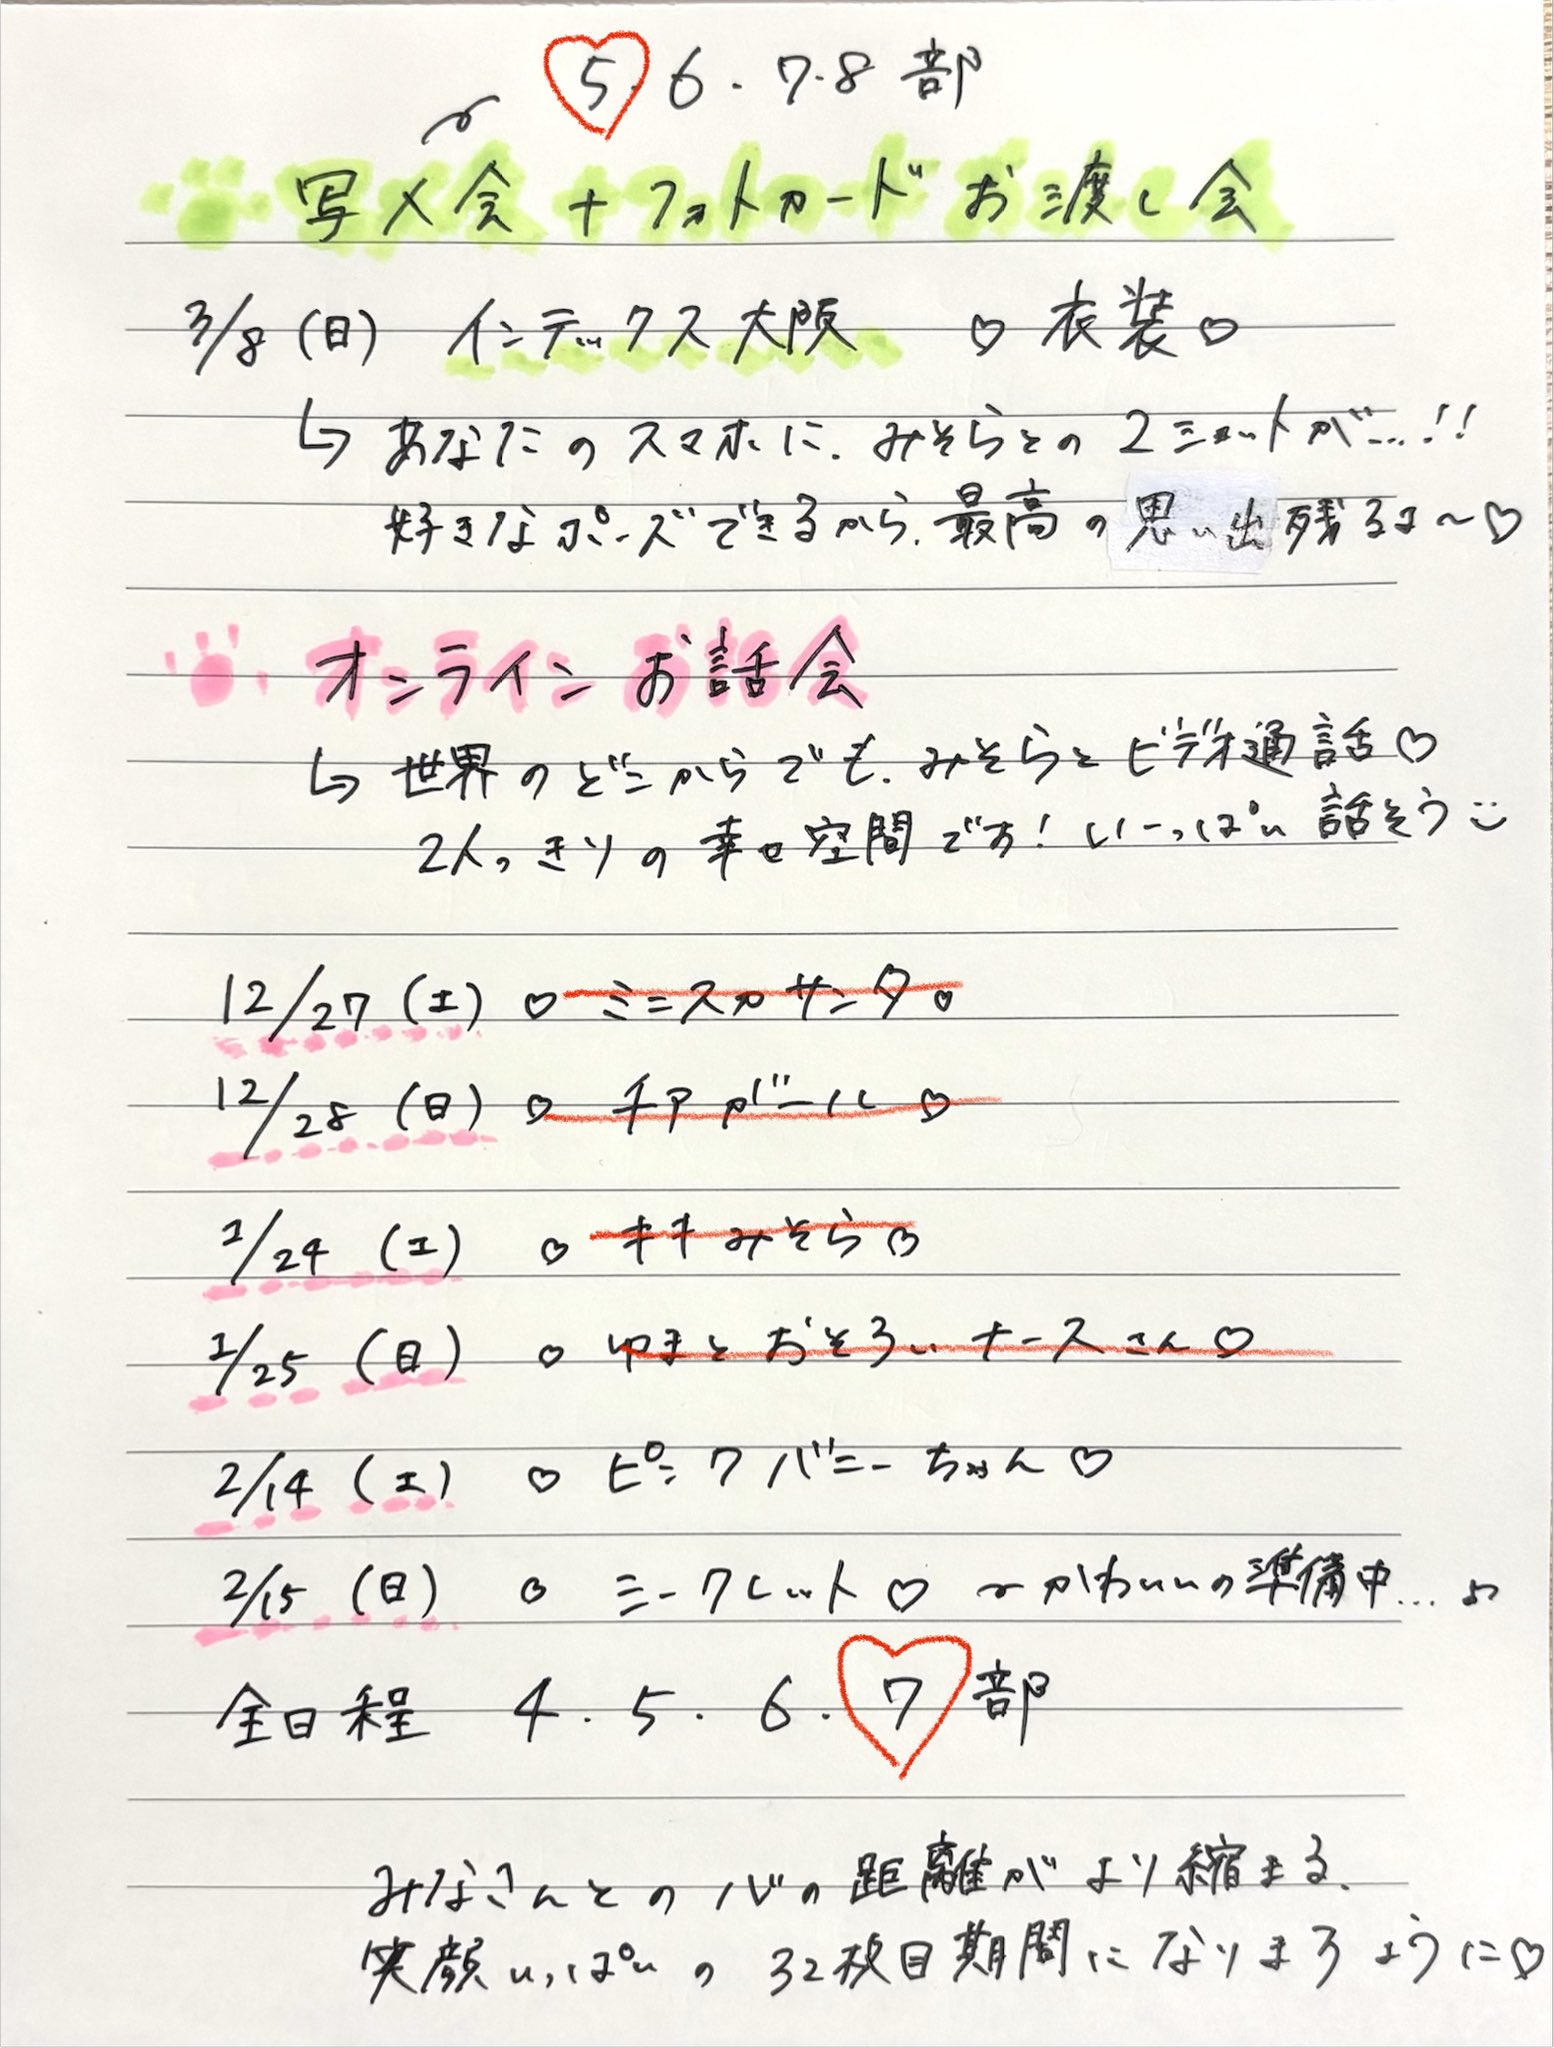 5.6.7.8部
写メ会+フォトカードお渡し会
3/8(日) インデックス大阪 ♡衣装♡
↳ あなたのスマホに、みそらとの2ショットが...!!
好きなポーズできるから、最高の思い出残るよ〜♡
オンラインお話会
↳ 世界のどこからでも、みそらとビデオ通話♡
2人っきりの幸せ空間です!いーっぱい話そう
12/27(土) ♡ミニスカサンタ♡
12/28(日) ♡チアガール♡
1/24(土) ♡キキみそら♡
1/25(日) ♡ゆきとおそろいナースさん♡
2/14(土) ♡ピンクバニーちゃん♡
2/15(日) ♡シークレット♡ 〜かわいいの準備中...♪
全日程 4.5.6.7部
みなさんとの心の距離がより縮まる、
笑顔いっぱいの32枚目期間になりますように♡